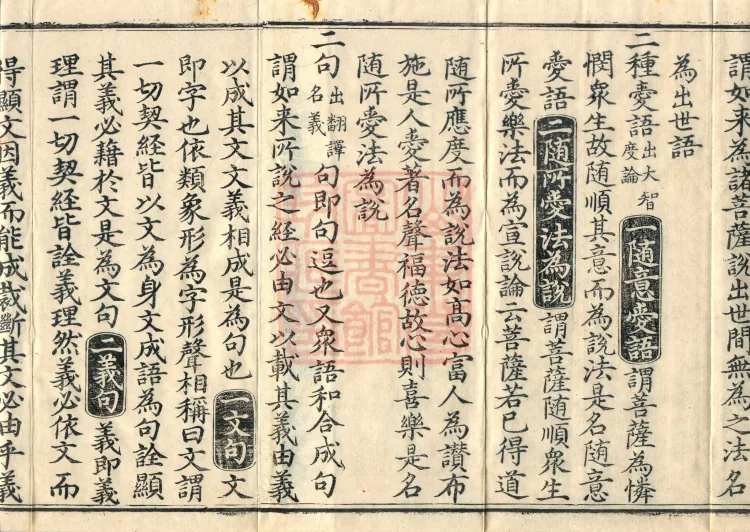 謂如來為諸菩薩說出世間無為之法名
為出世語
二種愛語出大智度論一隨意愛語謂菩薩為憐
憫眾生故隨順其意而為說法是名隨意
愛語二隨所愛法為說謂菩薩隨順眾生
所愛樂法而為宣說論云菩薩若已得道
隨所應度而為說法如高心富人為讚布
施是人愛著名聲福德故心則喜樂是名
隨所愛法為說
二句出翻譯名義句即句逗也又眾語和合成句
謂如來所說之經必由文以載其義由義
以成其文文義相成是為句也一文句文
即字也依類象形為字形聲相稱曰文謂
一切契經皆以文為身文成語為句詮顯
其義必藉於文是為文句二義句義即義
理謂一切契經皆詮義理然義必依文而
得顯文因義而能成裁斷其文必由乎義